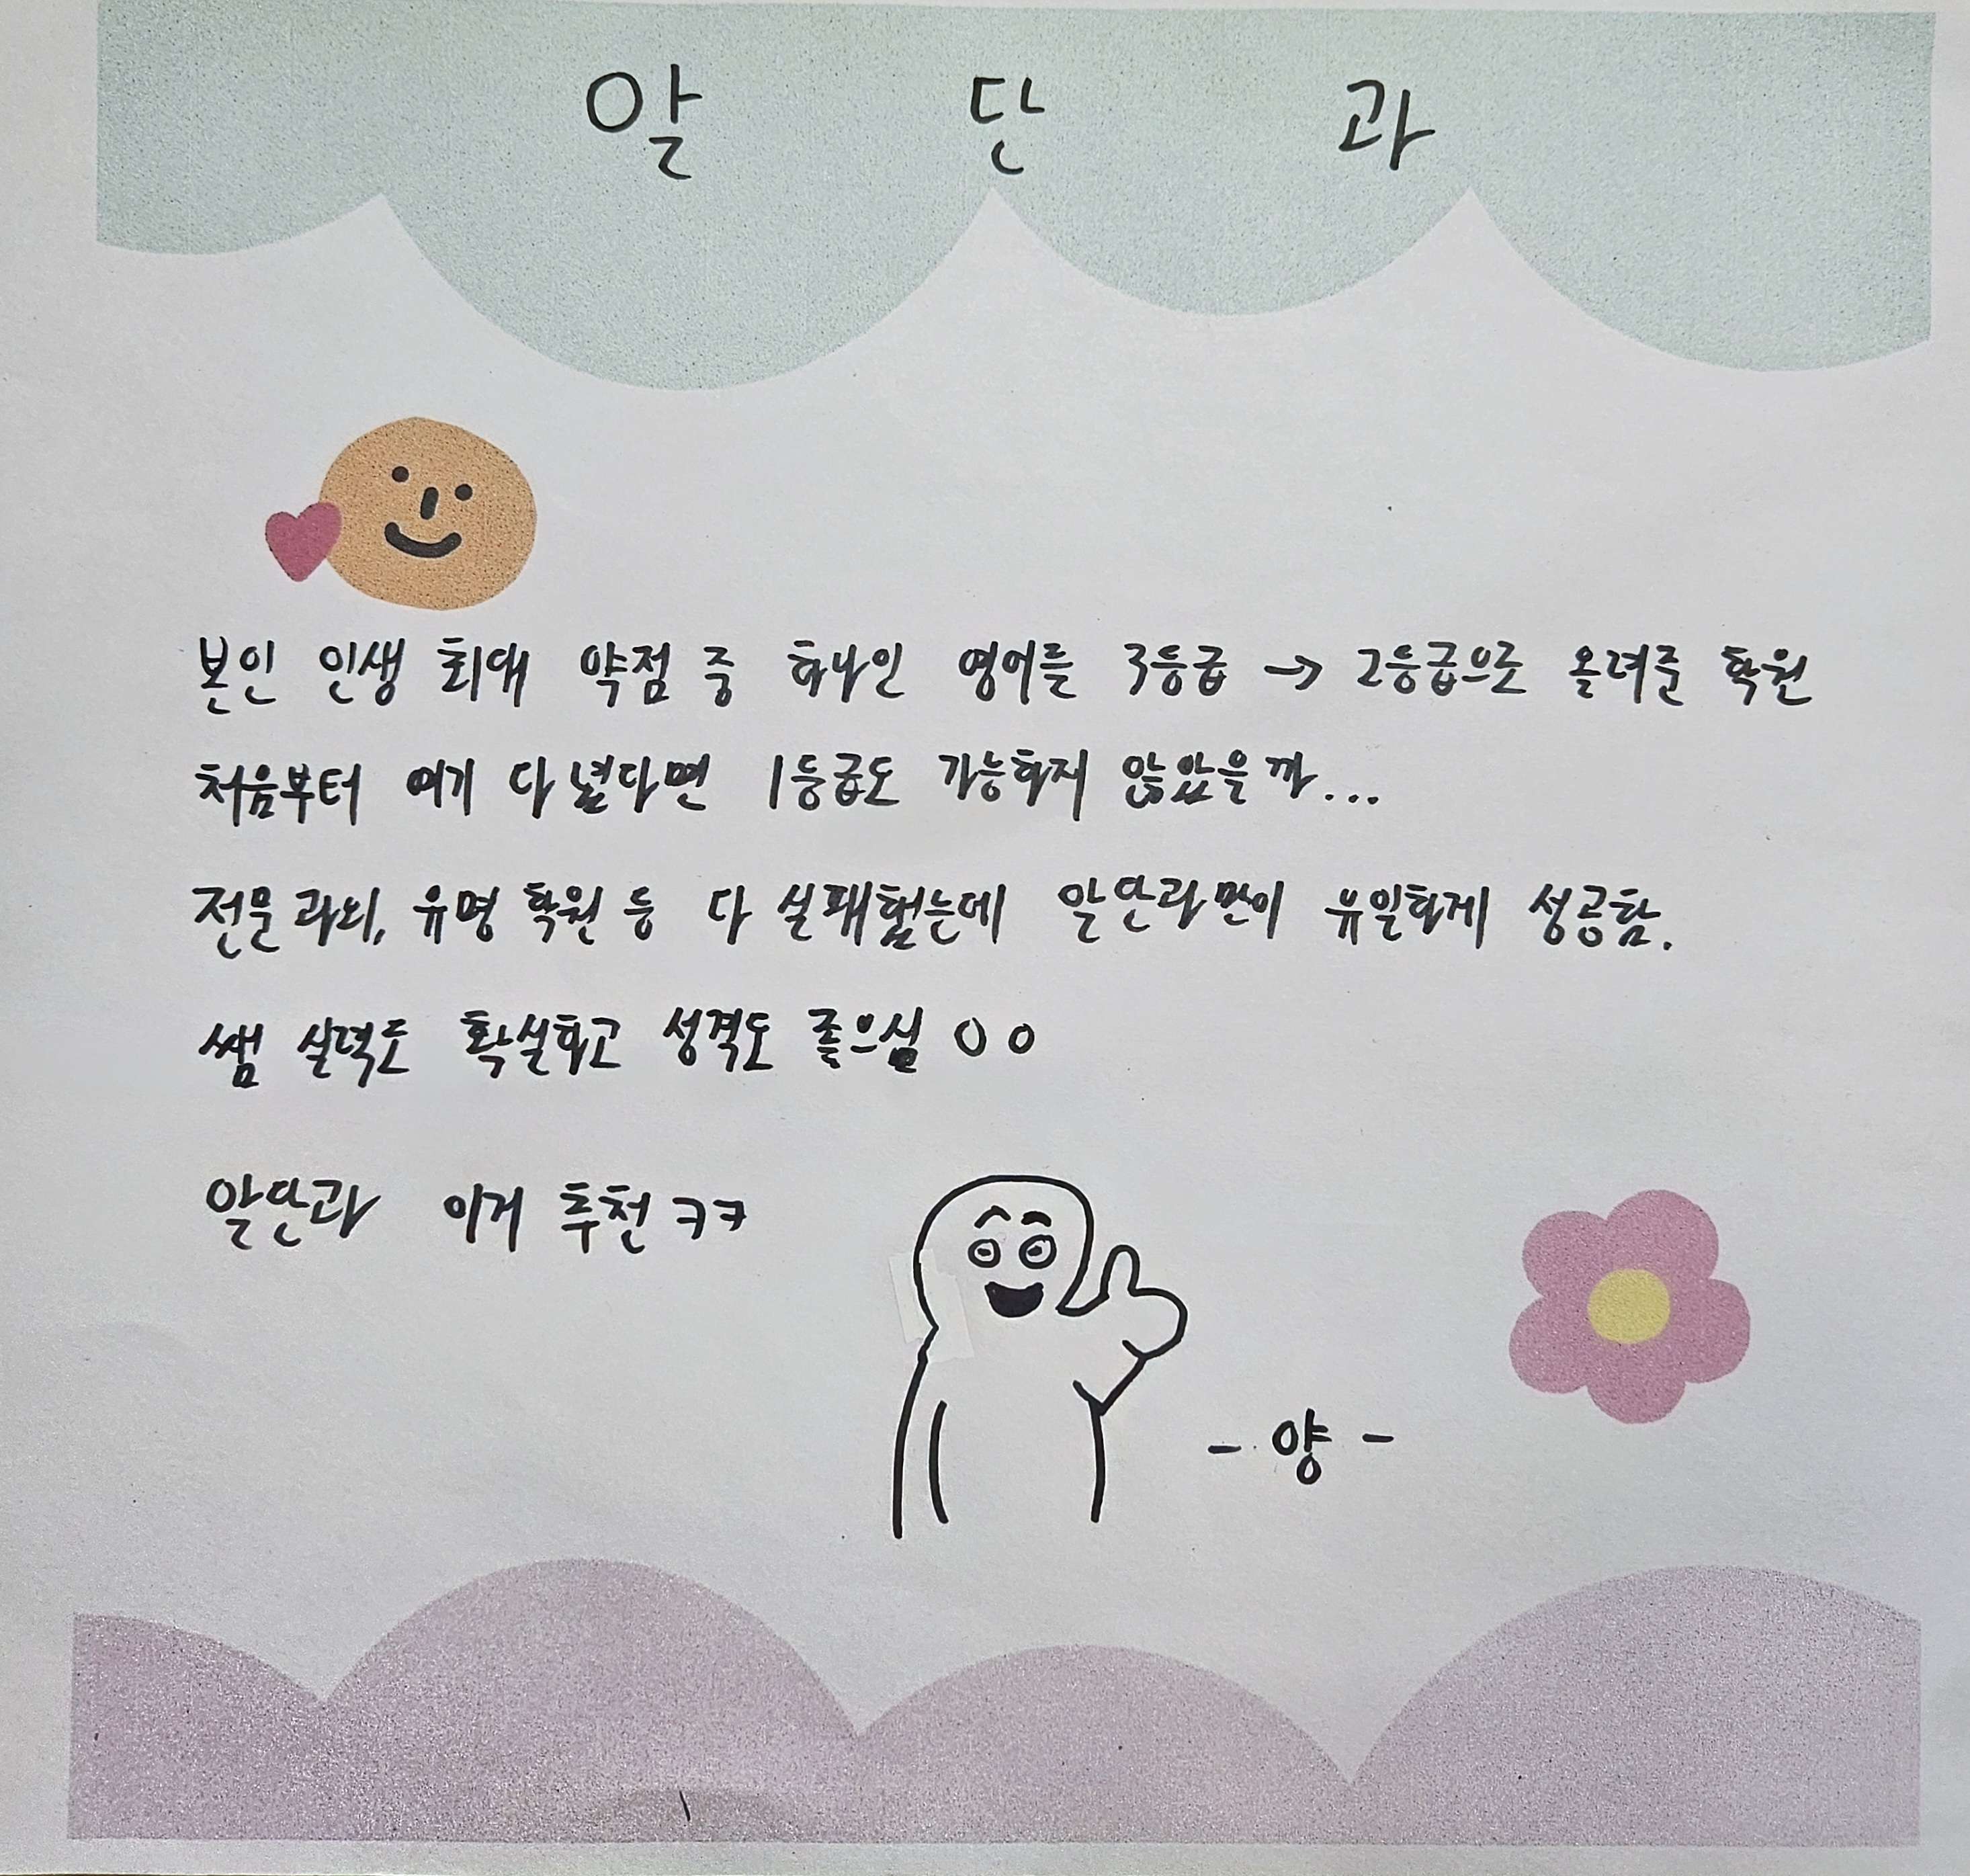 알 단 과
본인 인생 최대 약점 중 하나인 영어를 3등급 → 2등급으로 올려준 학원
처음부터 여기 다녔다면 1등급도 가능하지 않았을까...
전문과외, 유명 학원 등 다 실패했는데 알단과만이 유일하게 성공함.
쌤 실력도 확실하고 성격도 좋으심 ㅇㅇ
알단과 이거 추천 ㅋㅋ
- 양 -